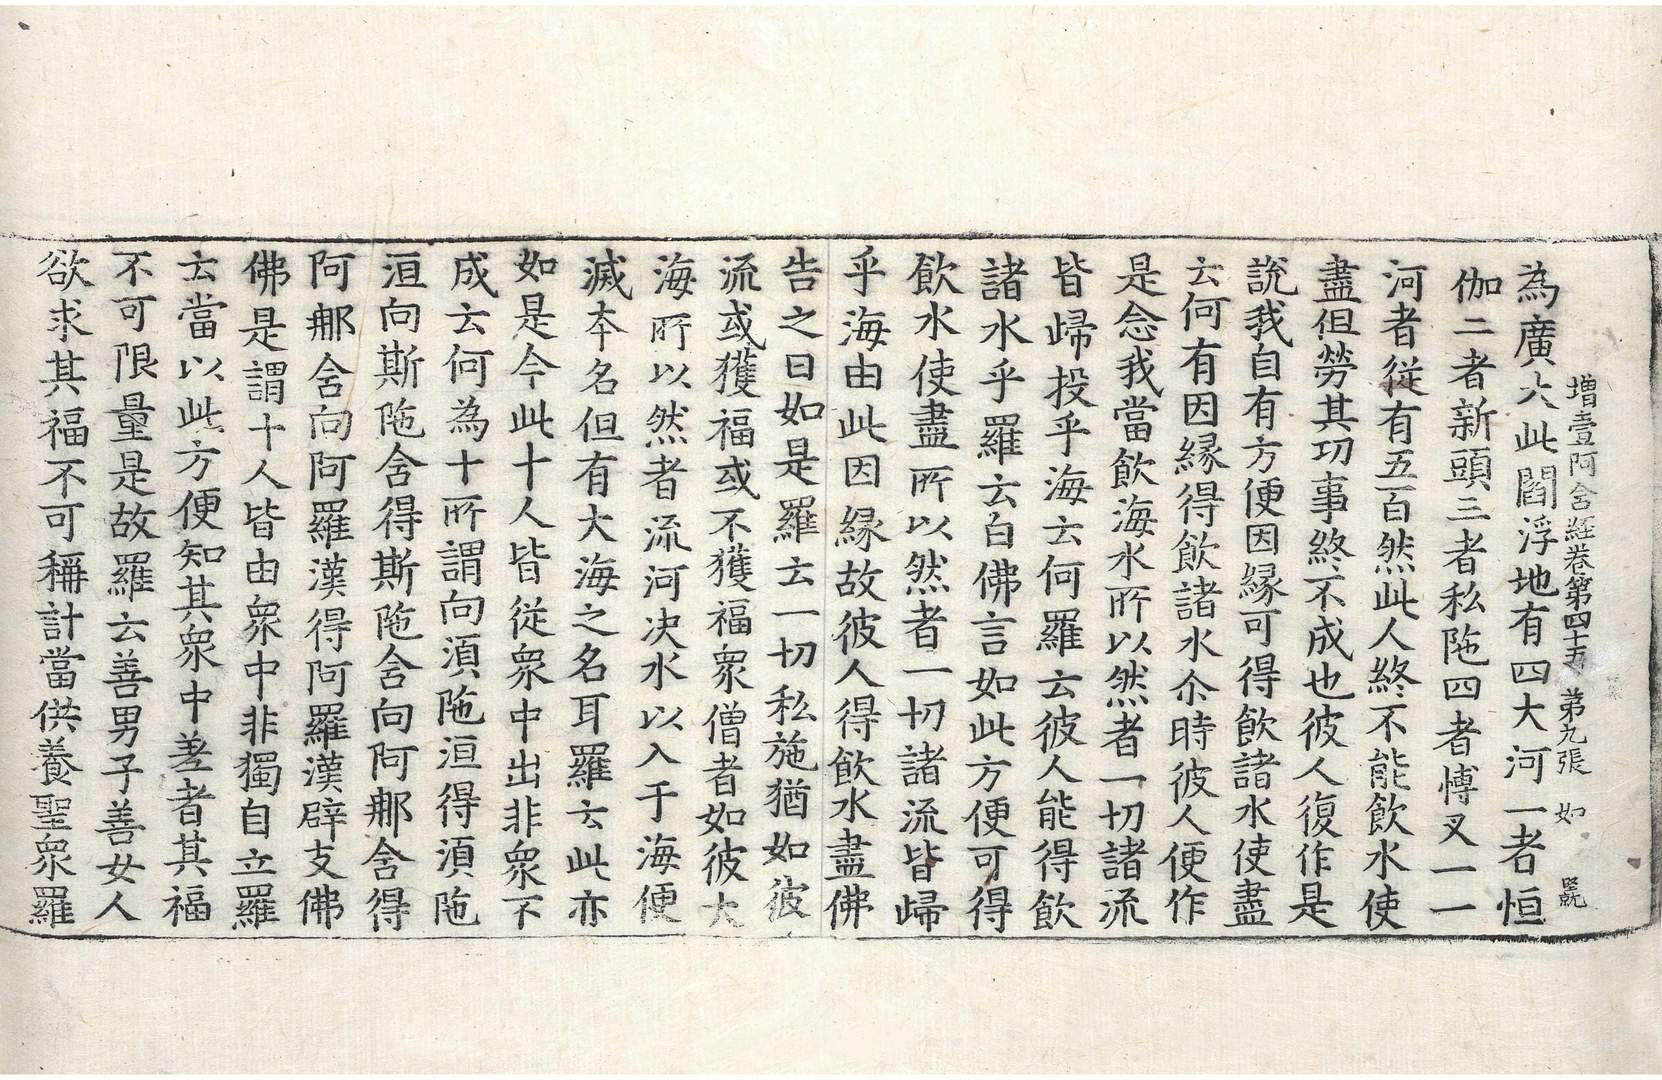 增壹阿含經卷第四十五 第九張 如 號
為廣大此閻浮地有四大河一者恒
伽二者新頭三者私陁四者愽叉一一
河者從有五百然此人終不能飲水使
盡但勞其功事終不成也彼人復作是
說我自有方便因縁可得飲諸水使盡
云何有因縁得飲諸水尒時彼人便作
是念我當飲海水所以然者一切諸流
皆歸投乎海云何羅云彼人能得飲
諸水乎羅云白佛言如此方便可得
飲水使盡所以然者一切諸流皆歸
乎海由此因縁故彼人得飲水盡佛
告之曰如是羅云一切私施猶如彼
流或獲福或不獲福衆僧者如彼大
海所以然者流河决水以入于海便
滅本名但有大海之名耳羅云此亦
如是今此十人皆從衆中出非衆不
成云何為十所謂向湏陁洹得湏陁
洹向斯陁含得斯陁含向阿那含得
阿那含向阿羅漢得阿羅漢辟支佛
佛是謂十人皆由衆中非獨自立羅
云當以此方便知其衆中善者其福
不可限量是故羅云善男子善女人
欲求其福不可稱計當供養聖衆羅